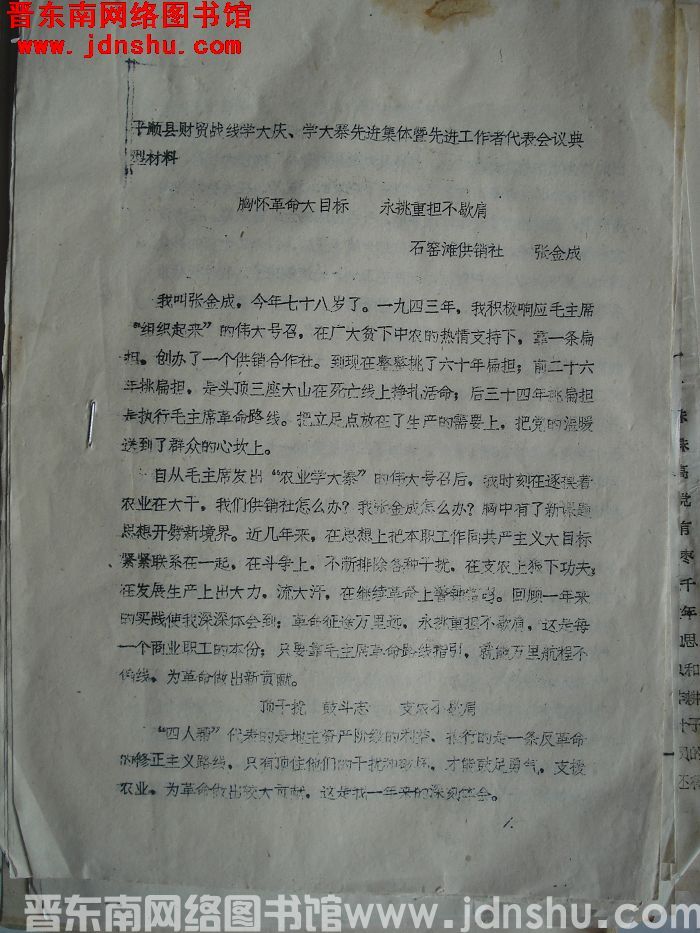 晋东南网络图书馆
www.jdnshu.com
平顺县财贸战线学大庆、学大寨先进集体暨先进工作者代表会议典
型材料
胸怀革命大目标 永挑重担不歇肩
石窑滩供销社 张金成
我叫张金成，今年七十八岁了。一九四三年，我积极响应毛主席
“组织起来”的伟大号召，在广大贫下中农的热情支持下，靠一条扁
担，创办了一个供销合作社。到现在整整挑了六十年扁担；前二十六
年挑扁担，是头顶三座大山在死亡线上挣扎活命；后三十四年挑扁担
是执行毛主席革命路线。把立足点放在了生产的需要上，把党的温暖
送到了群众的心坎上。
自从毛主席发出“农业学大寨”的伟大号召后，我时刻在琢摸着
农业在大干，我们供销社怎么办？我张金成怎么办？胸中有了新课题
思想开劈新境界。近几年来，在思想上把本职工作同共产主义大目标
紧紧联系在一起，在斗争上，不断排除各种干扰，在支农上狠下功夫，
在发展生产上出大力，流大汗，在继续革命上警钟常鸣。回顾一年来
的实践使我深深体会到：革命征途万里远，永挑重担不歇肩，这是每
一个商业职工的本份；只要靠毛主席革命路线指引，就能万里航程不
偏线，为革命做出新贡献。
顶干扰 鼓斗志 支农不歇肩
“四人帮”代表的是地主资产阶级的利益、推行的是一条反革命
的修正主义路线，只有顶住他们的干扰和破坏，才能鼓足勇气，支援
农业，为革命做出较大贡献，这是我一年来的深刻体会。
1.
晋东南网络图书馆www.jdnshu.com